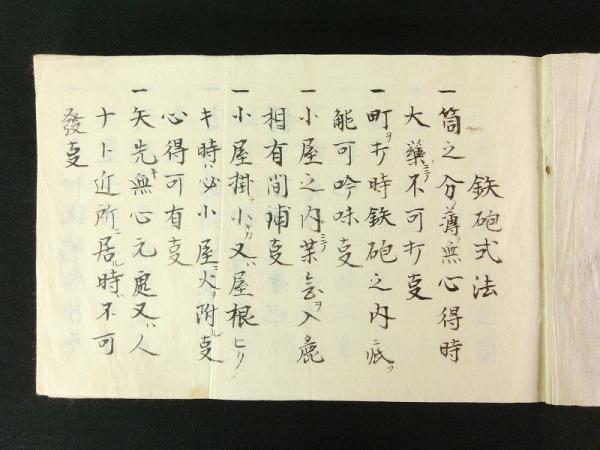 鉄砲式法
一筒之分薄無心得時
大薬ニテ不可打支
一町ヲ打時鉄砲之内ニ底ヲ
能可吟味支
一小屋之内ニテ業ヲ入鹿
相有間鋪支
一小屋掛小又ハ屋根ヒリ
キ時ハ必小屋ニ火ヲ附ル支
心得可有支
一矢先キ無心元處又ハ人
ナト近所ニ居ル時ハ不可
發支